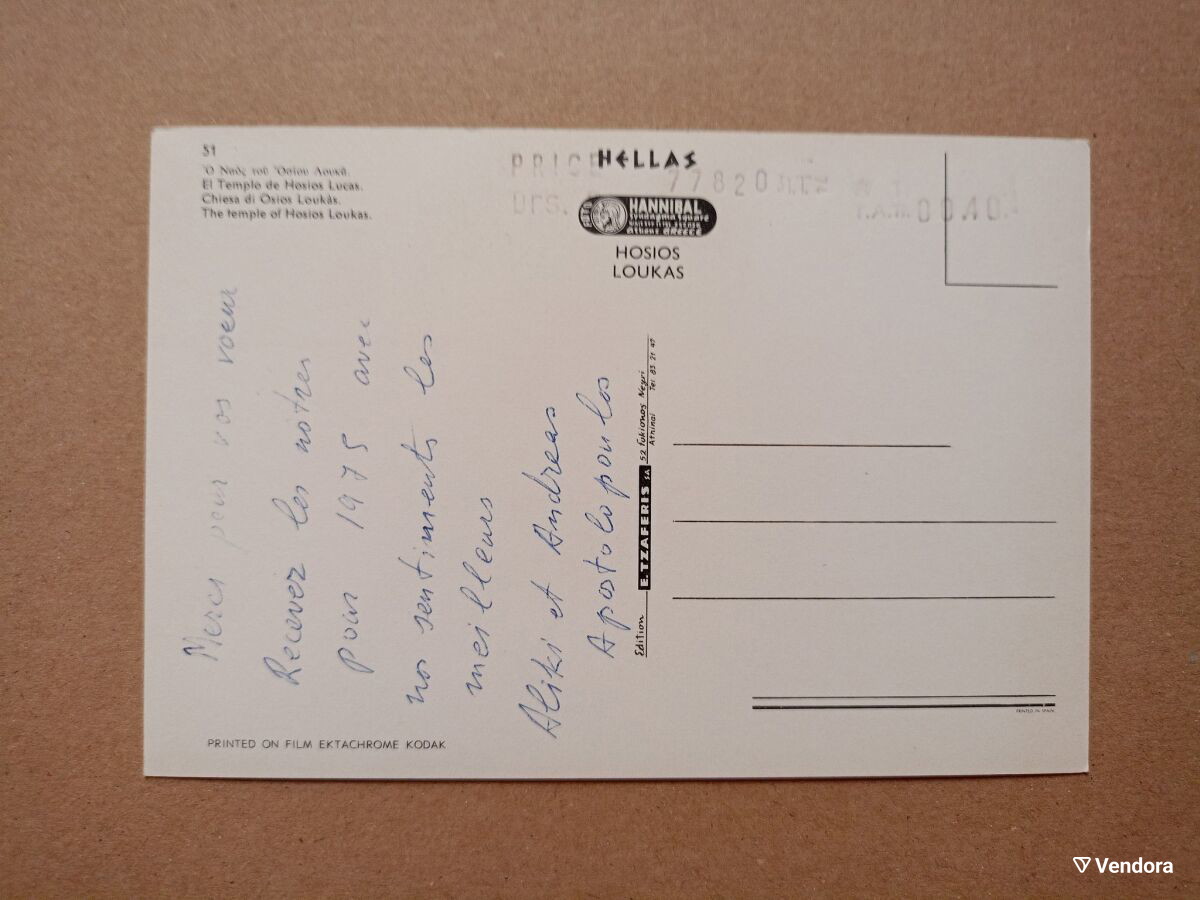 51
Ὁ Ναὸς τοῦ Ὁσίου Λουκᾶ.
El Templo de Hosios Lucas.
Chiesa di Osios Loukás.
The temple of Hosios Loukas.
HELLAS
PRICE 77820
Drs. 00.40
HANNIBAL
Athens GREECE
HOSIOS
LOUKAS
Merci pour vos voeux
Recevez les nôtres
pour 1975 avec
nos sentiments les
meilleurs
Aliki et Andreas
Apostolopoulos
Edition E. TZAFERIS SA 52 Fokionos Negri
Athinai Tel 83 21 47
PRINTED IN SPAIN
PRINTED ON FILM EKTACHROME KODAK
Vendora